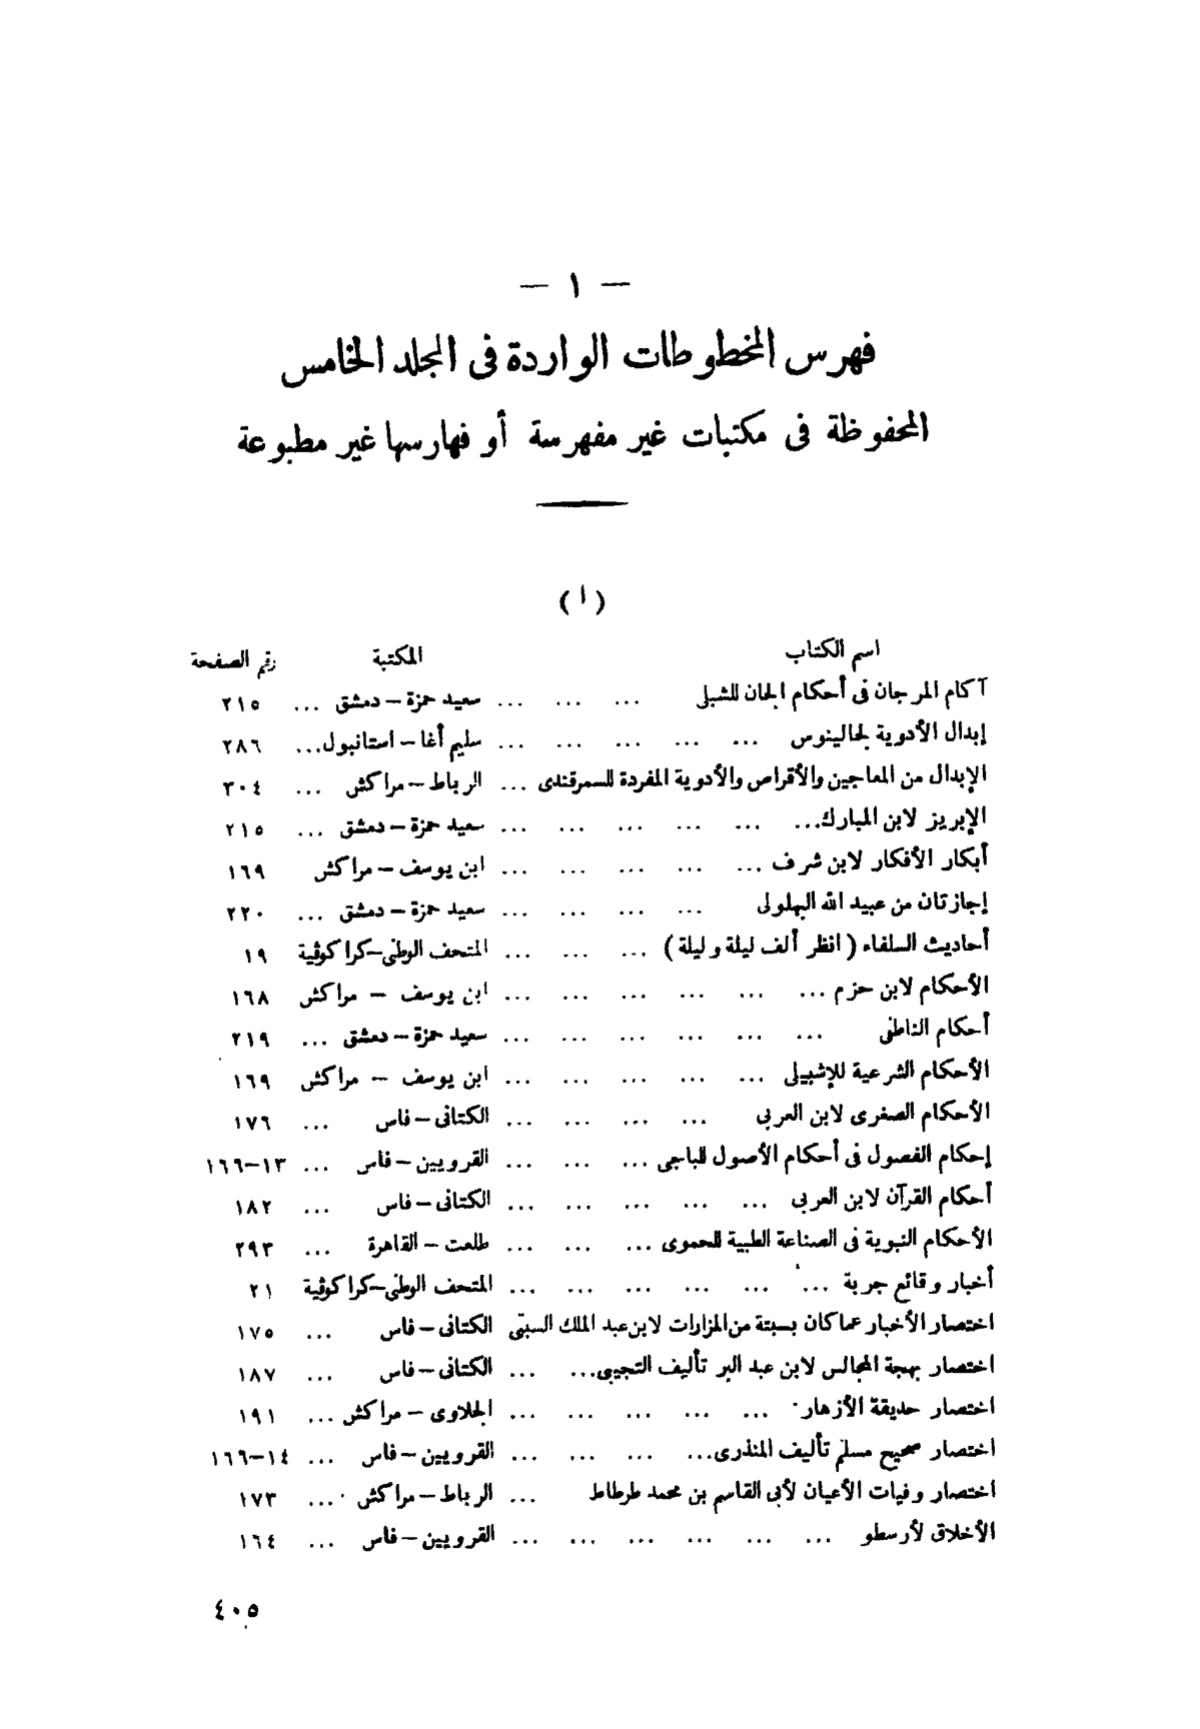 — ١ —
فهرس المخطوطات الواردة فى المجلد الخامس
المحفوظة فى مكتبات غير مفهرسة أو فهارسها غير مطبوعة
( ا )
اسم الكتاب المكتبة رقم الصفحة
آكام المرجان فى أحكام الجان للشبلى ... ... ... سعيد حمزة – دمشق ... ٢١٥
إبدال الأدوية لجالينوس ... ... ... ... ... سليم أغا – استانبول... ٢٨٦
الإبدال من المعاجين والأقراص والأدوية المفردة للسمرقندى ... الرباط – مراكش ... ٣٠٤
الإبريز لابن المبارك... ... ... ... ... ... سعيد حمزة – دمشق ... ٢١٥
أبكار الأفكار لابن شرف ... ... ... ... ... ابن يوسف – مراكش ١٦٩
إجازتان من عبيد الله البهلولى ... ... ... ... سعيد حمزة – دمشق ... ٢٢٠
أحاديث السلفاء ( انظر ألف ليلة وليلة ) ... ... ... المتحف الوطنى–كراكوفية ١٩
الأحكام لابن حزم ... ... ... ... ... ... ابن يوسف – مراكش ١٦٨
أحكام الناطفى ... ... ... ... ... ... سعيد حمزة – دمشق ... ٢١٩
الأحكام الشرعية للإشبيلى ... ... ... ... ... ابن يوسف – مراكش ١٦٩
الأحكام الصغرى لابن العربى ... ... ... ... الكتانى – فاس ... ١٧٦
إحكام الفصول فى أحكام الأصول للباجى ... ... ... القرويين – فاس ... ١٣–١٦٦
أحكام القرآن لابن العربى ... ... ... ... ... الكتانى – فاس ... ١٨٢
الأحكام النبوية فى الصناعة الطبية للحموى ... ... ... طلعت – القاهرة ... ٢٩٣
أخبار وقائع جربة ... ... ... ... ... ... المتحف الوطنى–كراكوفية ٢١
اختصار الأخبار عما كان بسبتة من المزارات لابن عبد الملك السبتى الكتانى – فاس ... ١٧٥
اختصار بهجة المجالس لابن عبد البر تأليف التجيبى... ... الكتانى – فاس ... ١٨٧
اختصار حديقة الأزهار ... ... ... ... ... الجلاوى – مراكش ... ١٩١
اختصار صحيح مسلم تأليف المنذرى... ... ... ... القرويين – فاس ... ١٤–١٦٦
اختصار وفيات الأعيان لأبى القاسم بن محمد طرطاط ... الرباط – مراكش ... ١٧٣
الأخلاق لأرسطو ... ... ... ... ... ... القرويين – فاس ... ١٦٤
٤٠٥